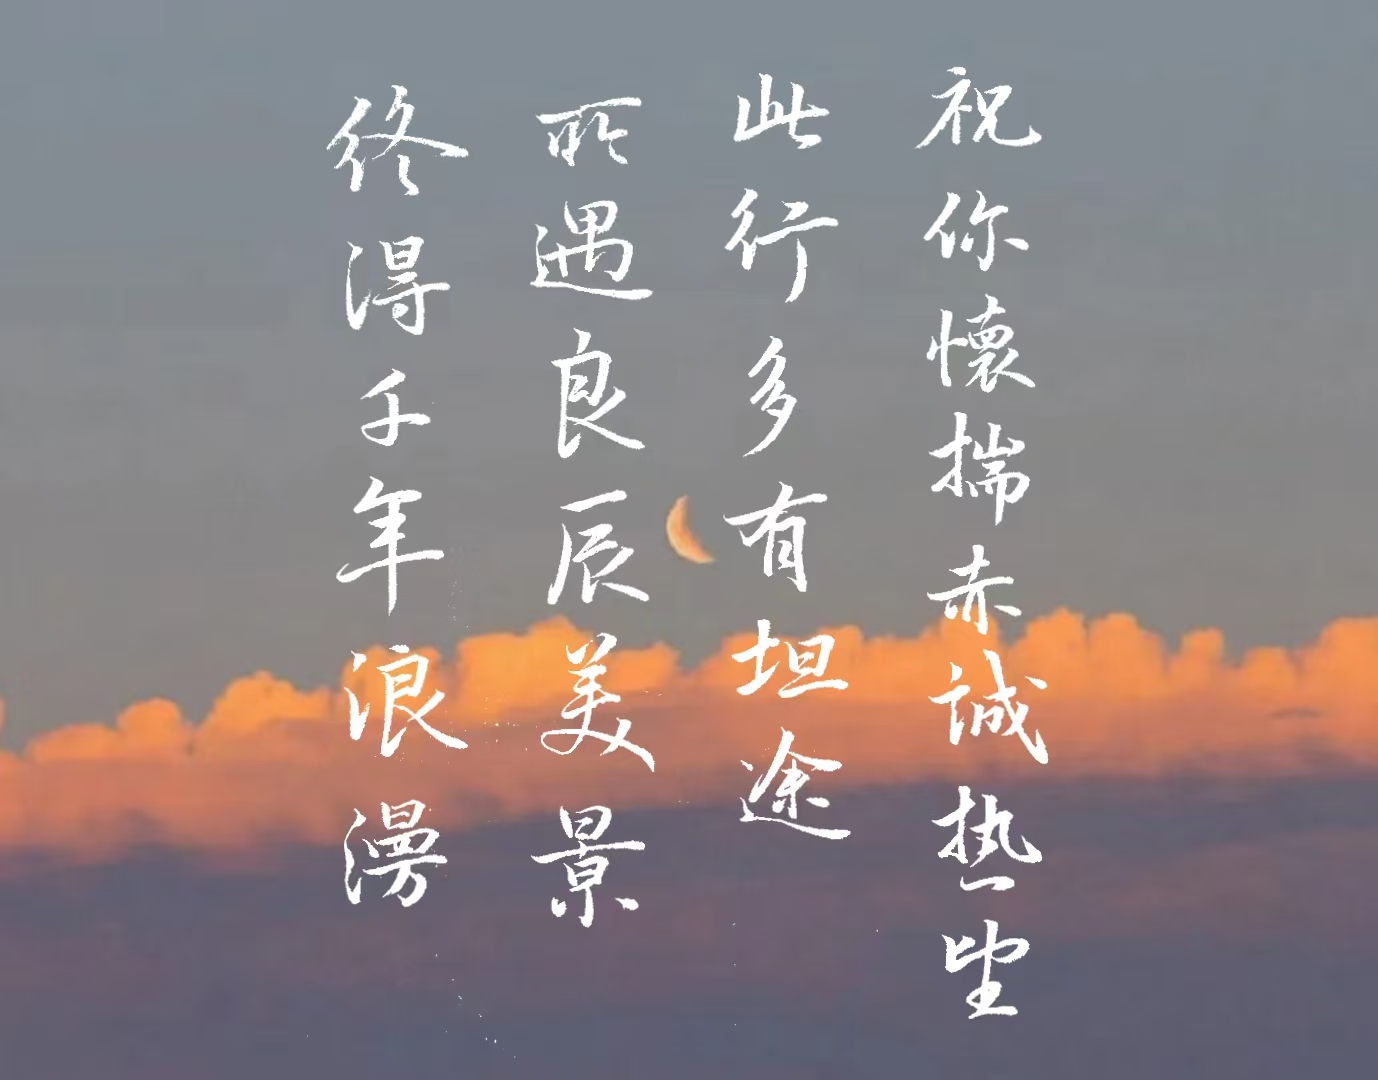 祝你懷揣赤誠热望
此行多有坦途
所遇良辰美景
终得千年浪漫